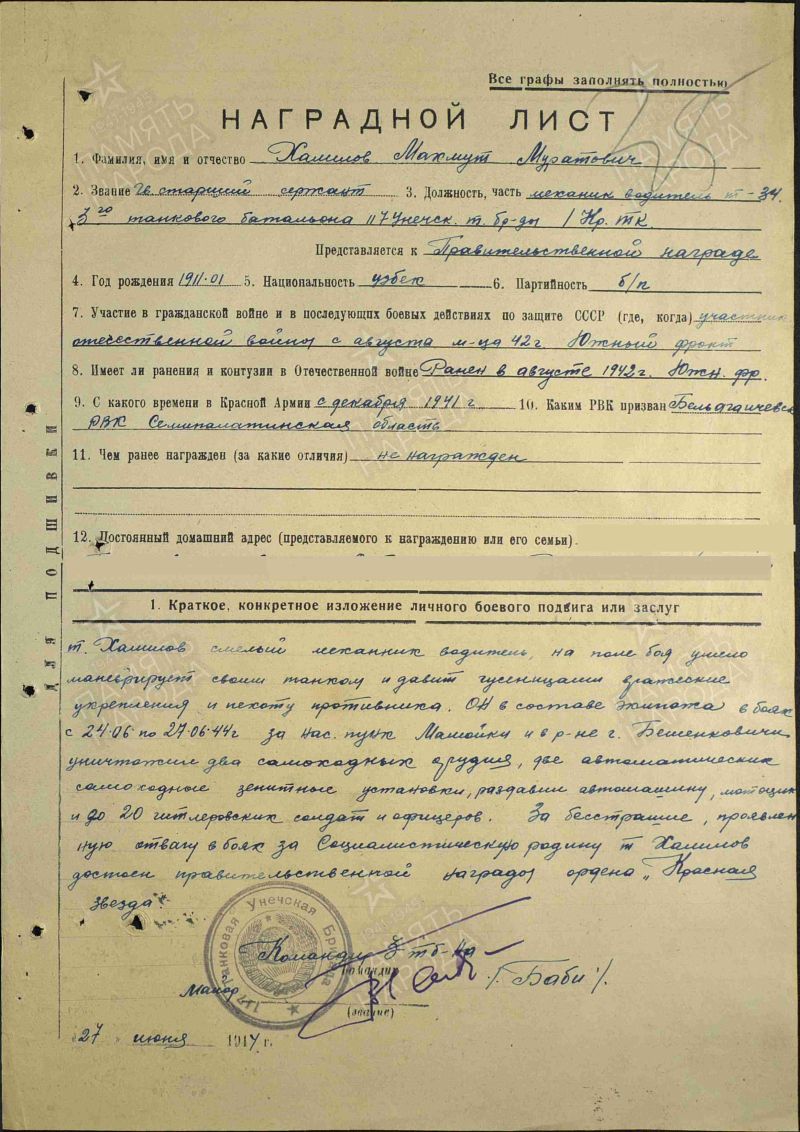 Все графы заполнять полностью
НАГРАДНОЙ ЛИСТ
38
1. Фамилия, имя и отчество Халилов Махмут Муратович
2. Звание Гв старший сержант 3. Должность, часть механик водитель т-34
3го танкового батальона 117 Унечск. т. бр-ды 1 Кр. тк
Представляется к Правительственной награде
4. Год рождения 1911.01 5. Национальность узбек 6. Партийность б/п
7. Участие в гражданской войне и в последующих боевых действиях по защите СССР (где, когда) участник
отечественной войны с августа м-ца 42г. Южный фронт
8. Имеет ли ранения и контузии в Отечественной войне Ранен в августе 1942г. Южн. фр.
9. С какого времени в Красной Армии с декабря 1941 г 10. Каким РВК призван Бельагачевск
РВК Семипалатинская область
11. Чем ранее награжден (за какие отличия) не награжден
12. Постоянный домашний адрес (представляемого к награждению или его семьи).
1. Краткое, конкретное изложение личного боевого подвига или заслуг
т. Халилов смелый механник водитель, на поле боя умело
маневрирует своим танком и давит гусеницами вражеские
укрепления и пехоту противника. Он в составе экипажа в боях
с 24.06 по 27.06.44г за нас. пунк Мамойки и в р-не г. Бешенковичи
уничтожил два самоходных орудия, две автоматических
самоходные зенитные установки, раздавил автомашину, мотоцик
и до 20 гитлеровских солдат и офицеров. За бесстрашие, проявлен
ную отвагу в боях за Социалистическую родину т Халилов
достоен правительственной награды ордена „Красная
звезда".
117 Танковая Унечская Бригада
Командир 3 тб-на
Командир
Майор /Баби/.
(звание)
27 июня 1944 г.
ДЛЯ ПОДШИВКИ
ПАМЯТЬ НАРОДА